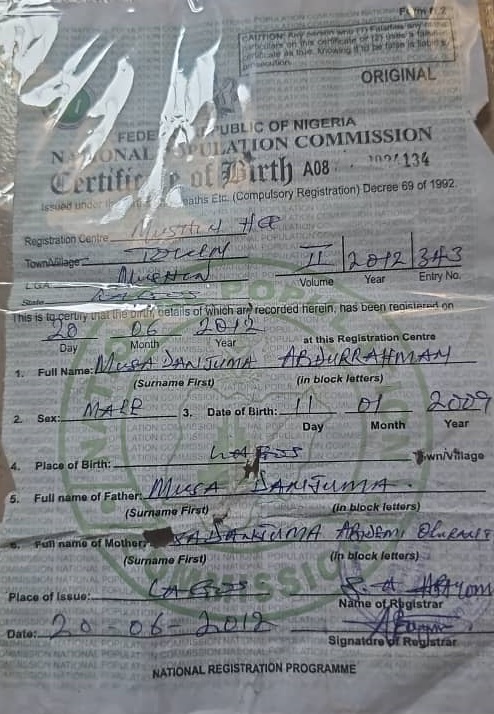 Form
CAUTION: Any person who (1) Falsifies any of the
particulars on this certificate or (2) uses a falsified
certificate as true, knowing it to be false is liable to
prosecution.
ORIGINAL
FEDE PUBLIC OF NIGERIA
NATIONAL POPULATION COMMISSION
Certificate of Birth A08 134
Issued under the Deaths Etc. (Compulsory Registration) Decree 69 of 1992
Registration Centre MUSHIN HQ
Town/Village
L.G.A. MUSHIN II 2012 343
State Volume Year Entry No.
This is to certify that the birth, details of which are recorded herein, has been registered on
20 06 2012 at this Registration Centre
Day Month Year
1. Full Name: MUSA DANJUMA ABDURRAHMAN
(Surname First) (in block letters)
2. Sex: MALE 3. Date of Birth: 11 01 2009
Day Month Year
4. Place of Birth: LAGOS Town/Village
5. Full name of Father: MUSA DANJUMA.
(Surname First) (in block letters)
6. Full name of Mother: DANJUMA
(Surname First) (in block letters)
Place of Issue: LAGOS
Name of Registrar
Date: 20-06-2012
Signature of Registrar
NATIONAL REGISTRATION PROGRAMME